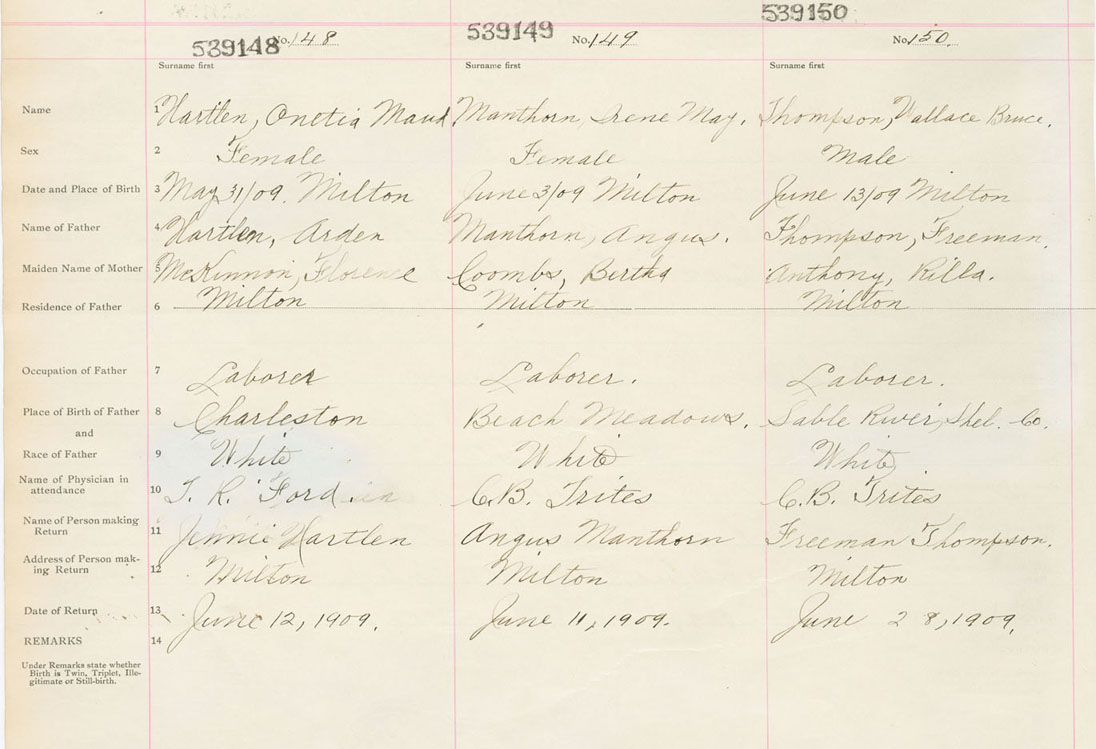 539148 No. 148 539149 No. 149 539150 No. 150.
Surname first Surname first Surname first
Name 1 Hartlen, Onetia Maud. Manthorn, Irene May. Thompson, Wallace Bruce.
Sex 2 Female Female Male
Date and Place of Birth 3 May 31/09. Milton June 3/09 Milton June 13/09 Milton
Name of Father 4 Hartlen, Arden Manthorn, Angus. Thompson, Freeman.
Maiden Name of Mother 5 McKinnon, Florence Coombs, Bertha Anthony, Rilla.
Residence of Father 6 Milton Milton Milton
Occupation of Father 7 Laborer Laborer. Laborer.
Place of Birth of Father 8 Charleston Beach Meadows. Sable River, Shel. Co.
and
Race of Father 9 White White White
Name of Physician in
attendance 10 T. R. Ford C.B. Trites C.B. Trites
Name of Person making
Return 11 Jennie Hartlen Angus Manthorn Freeman Thompson.
Address of Person mak-
ing Return 12 Milton Milton Milton
Date of Return 13 June 12, 1909. June 11, 1909. June 28, 1909.
REMARKS 14
Under Remarks state whether
Birth is Twin, Triplet, Ille-
gitimate or Still-birth.